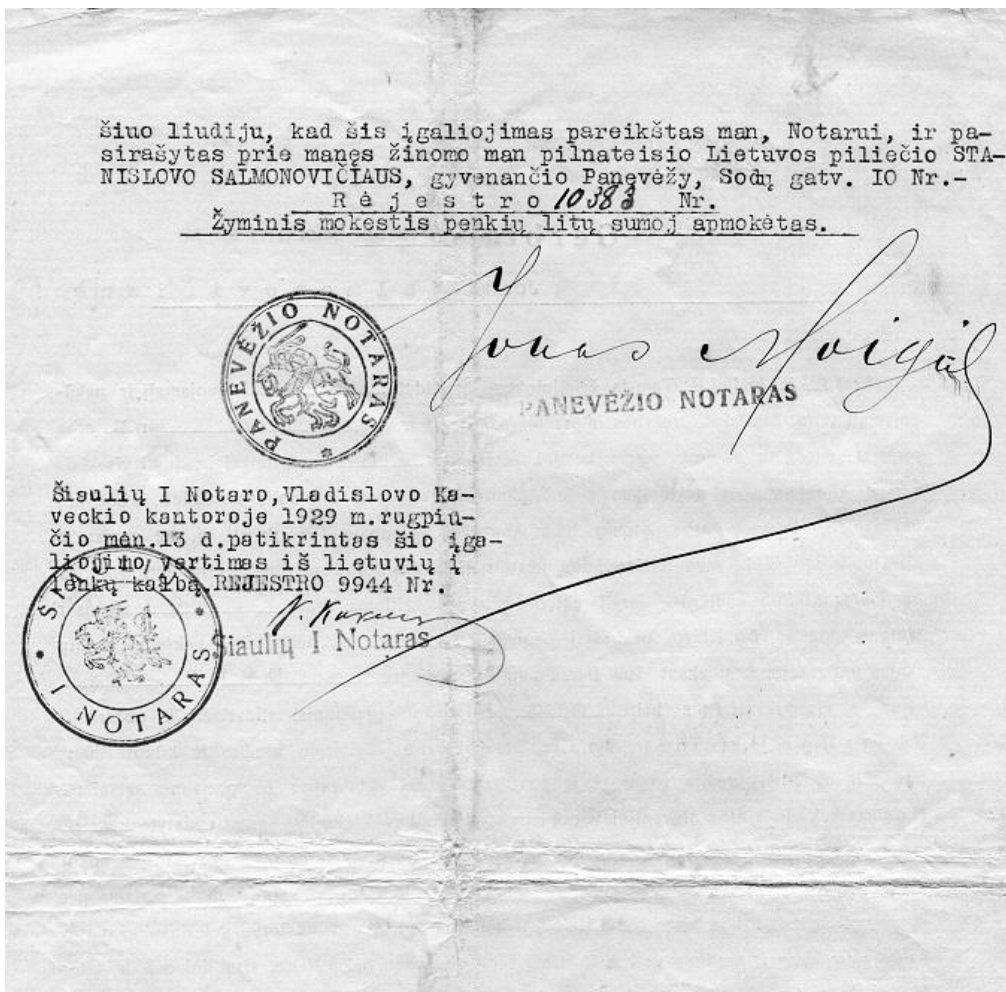 šiuo liudiju, kad šis įgaliojimas pareikštas man, Notarui, ir pa-
sirašytas prie manęs žinomo man pilnateisio Lietuvos piliečio STA-
NISLOVO SALMONOVIČIAUS, gyvenančio Panevėžy, Sodų gatv. IO Nr.-
Rejestro 10383 Nr.
Žyminis mokestis penkių litų sumoj apmokėtas.
Jonas
PANEVĖŽIO NOTARAS
PANEVĖŽIO NOTARAS
Šiaulių I Notaro, Vladislovo Ka-
veckio kantoroje 1929 m.rugpiū-
čio mėn.13 d.patikrintas šio įga-
liojimo vertimas iš lietuvių į
lenkų kalbą.REJESTRO 9944 Nr.
Šiaulių I Notaras
ŠIAULIŲ
I NOTARAS